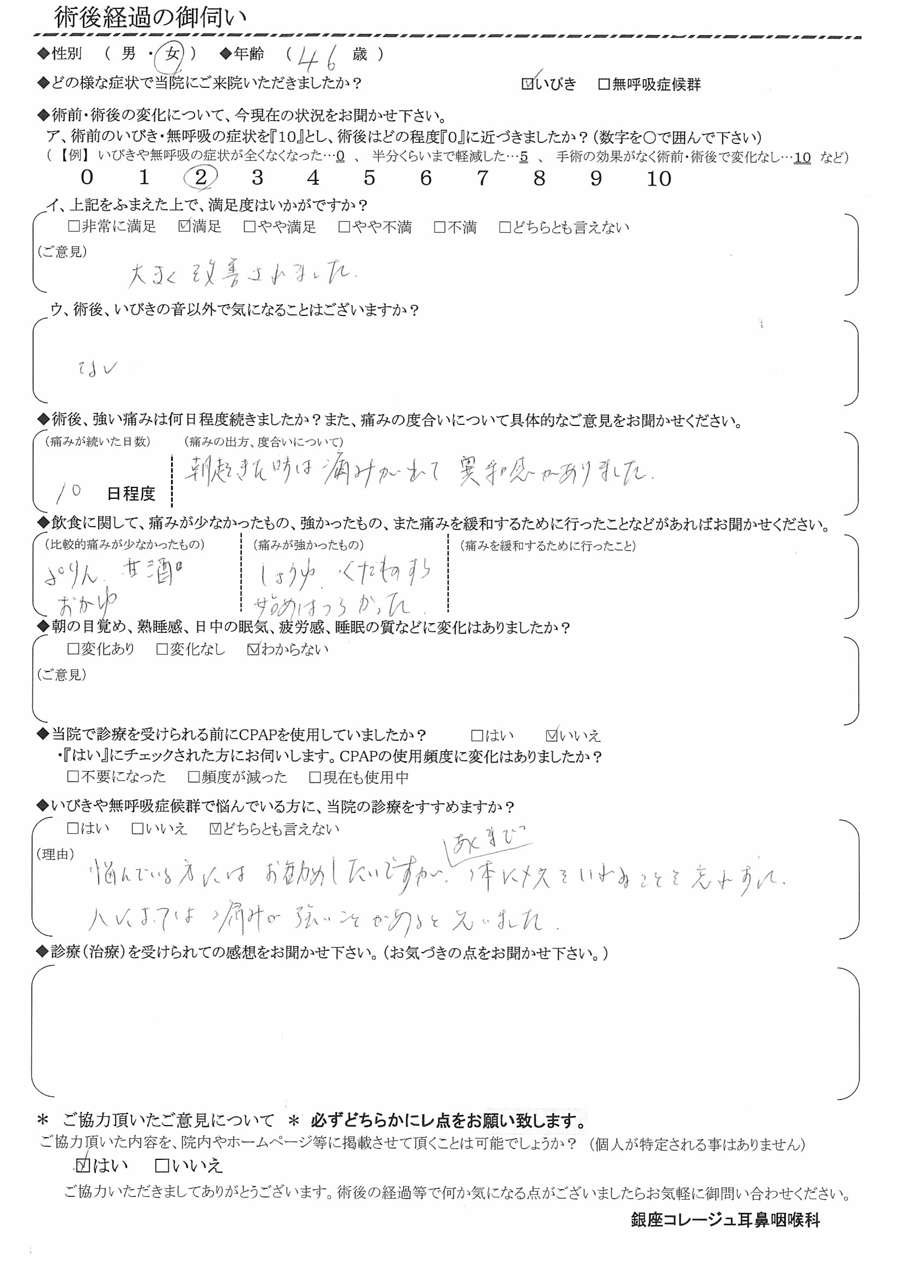 術後経過の御伺い
◆性別 ( 男 ・ 女 ) ◆年齢 ( 46 歳 )
◆どの様な症状で当院にご来院いただきましたか? ☑いびき □無呼吸症候群
◆術前・術後の変化について、今現在の状況をお聞かせ下さい。
ア、術前のいびき・無呼吸の症状を『10』とし、術後はどの程度『0』に近づきましたか?(数字を〇で囲んで下さい)
(【例】いびきや無呼吸の症状が全くなくなった…0 、 半分くらいまで軽減した…5 、 手術の効果がなく術前・術後で変化なし…10 など)
0 1 2 3 4 5 6 7 8 9 10
イ、上記をふまえた上で、満足度はいかがですか?
□非常に満足 ☑満足 □やや満足 □やや不満 □不満 □どちらとも言えない
(ご意見)
大きく改善されました.
ウ、術後、いびきの音以外で気になることはございますか?
ない
◆術後、強い痛みは何日程度続きましたか?また、痛みの度合いについて具体的なご意見をお聞かせください。
(痛みが続いた日数) (痛みの出方、度合いについて)
朝起きた時は痛みが出て異和感がありました.
10 日程度
◆飲食に関して、痛みが少なかったもの、強かったもの、また痛みを緩和するために行ったことなどがあればお聞かせください。
(比較的痛みが少なかったもの) (痛みが強かったもの) (痛みを緩和するために行ったこと)
ぷりん. 甘酒 しょうゆ. くだものすら
おかゆ 始めはつらかった.
◆朝の目覚め、熟睡感、日中の眠気、疲労感、睡眠の質などに変化はありましたか?
□変化あり □変化なし ☑わからない
(ご意見)
◆当院で診療を受けられる前にCPAPを使用していましたか? □はい ☑いいえ
・『はい』にチェックされた方にお伺いします。CPAPの使用頻度に変化はありましたか?
□不要になった □頻度が減った □現在も使用中
◆いびきや無呼吸症候群で悩んでいる方に、当院の診療をすすめますか?
□はい □いいえ ☑どちらとも言えない
(理由)
あくまで
悩んでいる方にはお勧めしたいですが. 体にメスをいれることを忘れずに.
人によっては痛みが強いことがあると思いました.
◆診療(治療)を受けられての感想をお聞かせ下さい。(お気づきの点をお聞かせ下さい。)
* ご協力頂いたご意見について * 必ずどちらかにレ点をお願い致します。
ご協力頂いた内容を、院内やホームページ等に掲載させて頂くことは可能でしょうか? (個人が特定される事はありません)
☑はい □いいえ
ご協力いただきましてありがとうございます。術後の経過等で何か気になる点がございましたらお気軽に御問い合わせください。
銀座コレージュ耳鼻咽喉科